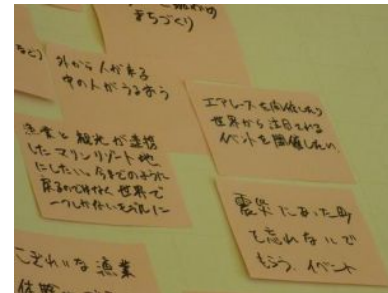 まちづくり
など)
外から人が来る
中の人がうるおう
エアレースを開催したり
世界から注目される
イベントを開催したい。
漁業と観光が連携
したマリンリゾート地
にしたい。今までの
戻るのではなく世界で
一つしかない
震災にあった町
を忘れないで
もらう、イベント
きれいな漁業